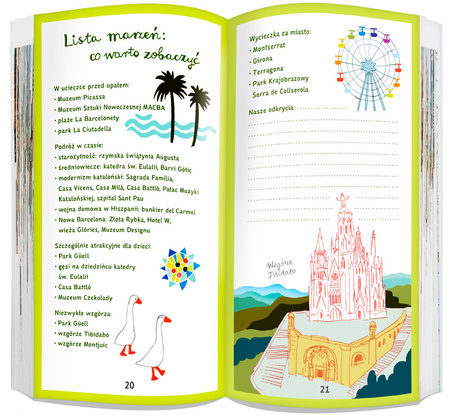 Lista marzeń:
co warto zobaczyć
W ucieczce przed upałem:
• Muzeum Picassa
• Muzeum Sztuki Nowoczesnej MACBA
• plaże La Barcelonety
• park La Ciutadella
Podróż w czasie:
• starożytność: rzymska świątynia Augusta
• średniowiecze: katedra św. Eulalii, Barri Gòtic
• modernizm kataloński: Sagrada Família,
Casa Vicens, Casa Milà, Casa Battló, Pałac Muzyki
Katalońskiej, szpital Sant Pau
• wojna domowa w Hiszpanii: bunkier del Carmel
• Nowa Barcelona: Złota Rybka, Hotel W,
wieża Glòries, Muzeum Designu
Szczególnie atrakcyjne dla dzieci:
• Park Güell
• gęsi na dziedzińcu katedry
św. Eulalii
• Casa Battló
• Muzeum Czekolady
Niezwykłe wzgórza:
• Park Güell
• wzgórze Tibidabo
• wzgórze Montjuïc
20
Wycieczka za miasto:
• Montserrat
• Girona
• Terragona
• Park Krajobrazowy
Serra de Collserola
Nasze odkrycia:
Wzgórze
Tibidabo
21